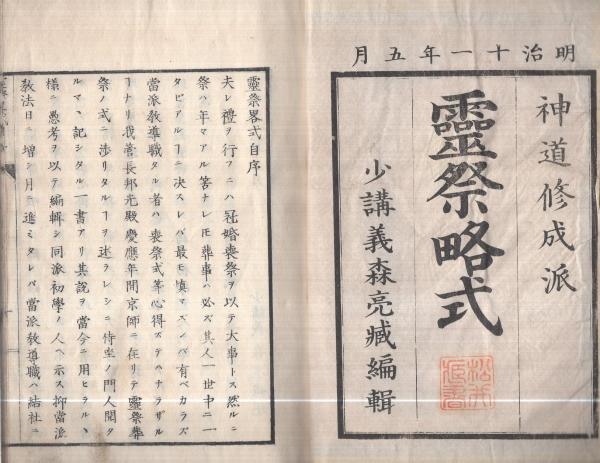 明治十一年五月
神道修成派
靈祭略式
少講義森亮臧編輯
靈祭畧式自序
夫レ禮ヲ行フニハ冠婚喪祭ヲ以テ大事トス然ルニ
祭ハ年マアル筈ナレ𪜈葬事ハ必ズ其人一世中ニ一
タビアルヿニ决スレバ最モ慎マズンバ有ベカラズ
當派教導職タル者ハ喪祭式等心得ズテハナラザル
ヿナリ我管長邦光殿慶應年間京師ニ在リテ靈祭葬
祭ノ式ニ渉リタルヿヲ述ラレシニ侍坐ノ門人聞タ
ルマヽ記シタル一書アリ其説ヲ當今ニ用ヒラルヽ
樣ニ愚考ヲ以テ編輯シ同派初學ノ人ヘ示ス抑當派
教法日ニ增シ月ニ進ミタレバ當派教導職ハ結社ニ